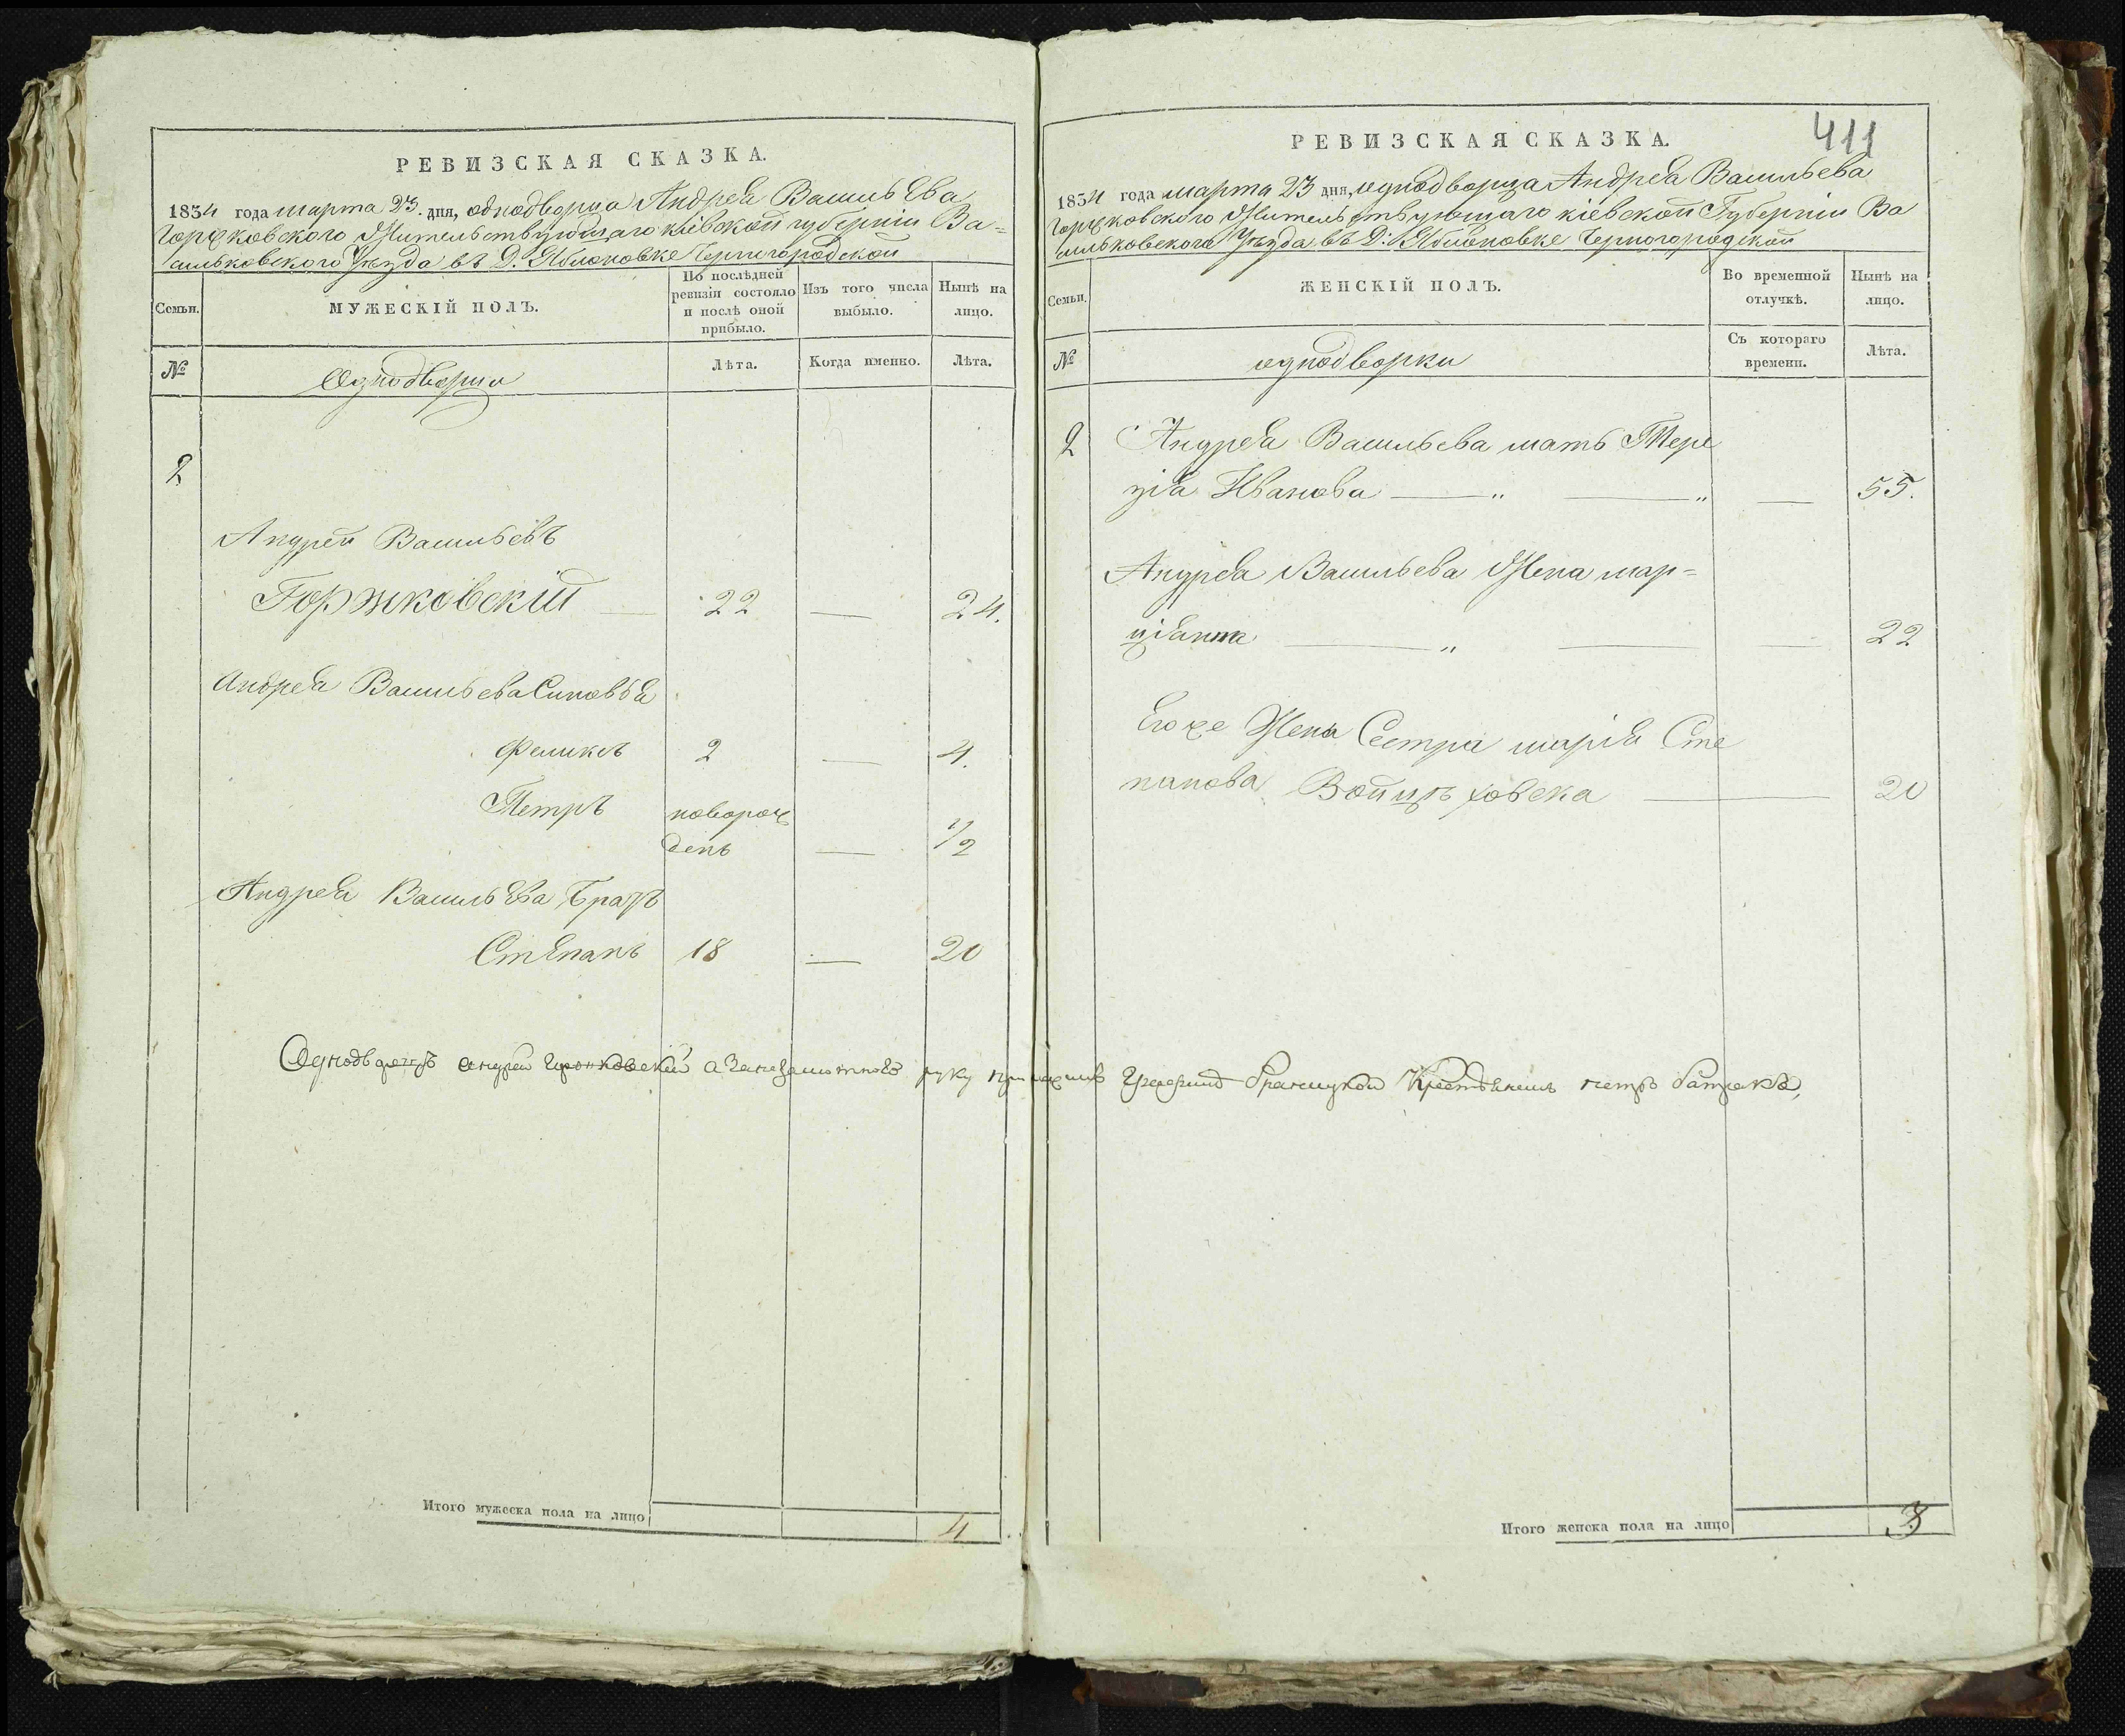 РЕВИЗСКАЯ СКАЗКА.
1834 года марта 23. дня, однодворца Андрея Васильева
Горжковского Жительствующаго кіевской губерніи Ва-
сильковского Уѣзда въ Д. Яблоновке Черногородской
Семьи.
МУЖЕСКІЙ ПОЛЪ.
По послѣдней
ревизіи состояло
и послѣ оной
прибыло.
Изъ того числа
выбыло.
Нынѣ на
лицо.
№
Однодворцы
Лѣта.
Когда именно.
Лѣта.
2
Андрей Васильевъ
Горжковскій — 22 — 24.
Андрея Васильева Синовья
Феликсъ 2 — 4.
Петръ новорож
денъ — 1/2
Андрея Васильева Братъ
Степанъ 18 — 20
Однодворецъ андрей Горжковский а Занеграмотного руку приложилъ
Итого мужеска пола на лицо 4
411
РЕВИЗСКАЯ СКАЗКА.
1834 года марта 23 дня, однодворца Андрея Васильева
Горжковского Жительствующаго кіевской Губерніи Ва
сильковского Уѣзда въ Д: Яблоновке Черногородской
Семьи.
ЖЕНСКІЙ ПОЛЪ.
Во временной
отлучкѣ.
Нынѣ на
лицо.
№
однодворки
Съ котораго
времени.
Лѣта.
2 Андрея Васильева мать Тере
зія Иванова — " — " — 55.
Андрея Васильева Жена мар-
ціанна — " — — 22
Егоже Жены Сестра марія Сте
панова Войцѣховска — 20
Графини браницкой Крестьянинъ петръ
Итого женска пола на лицо 3